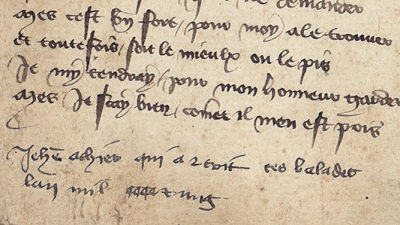 demander
Mes cest bien fort / pour moy / a le trouver
et toutefois / soit le mieulx ou le pis
Je my tendray / pour mon honneur garder
Mes Je scay bien / comet il men est pris
Jehē achier qui a escrit ces balades
lan mil